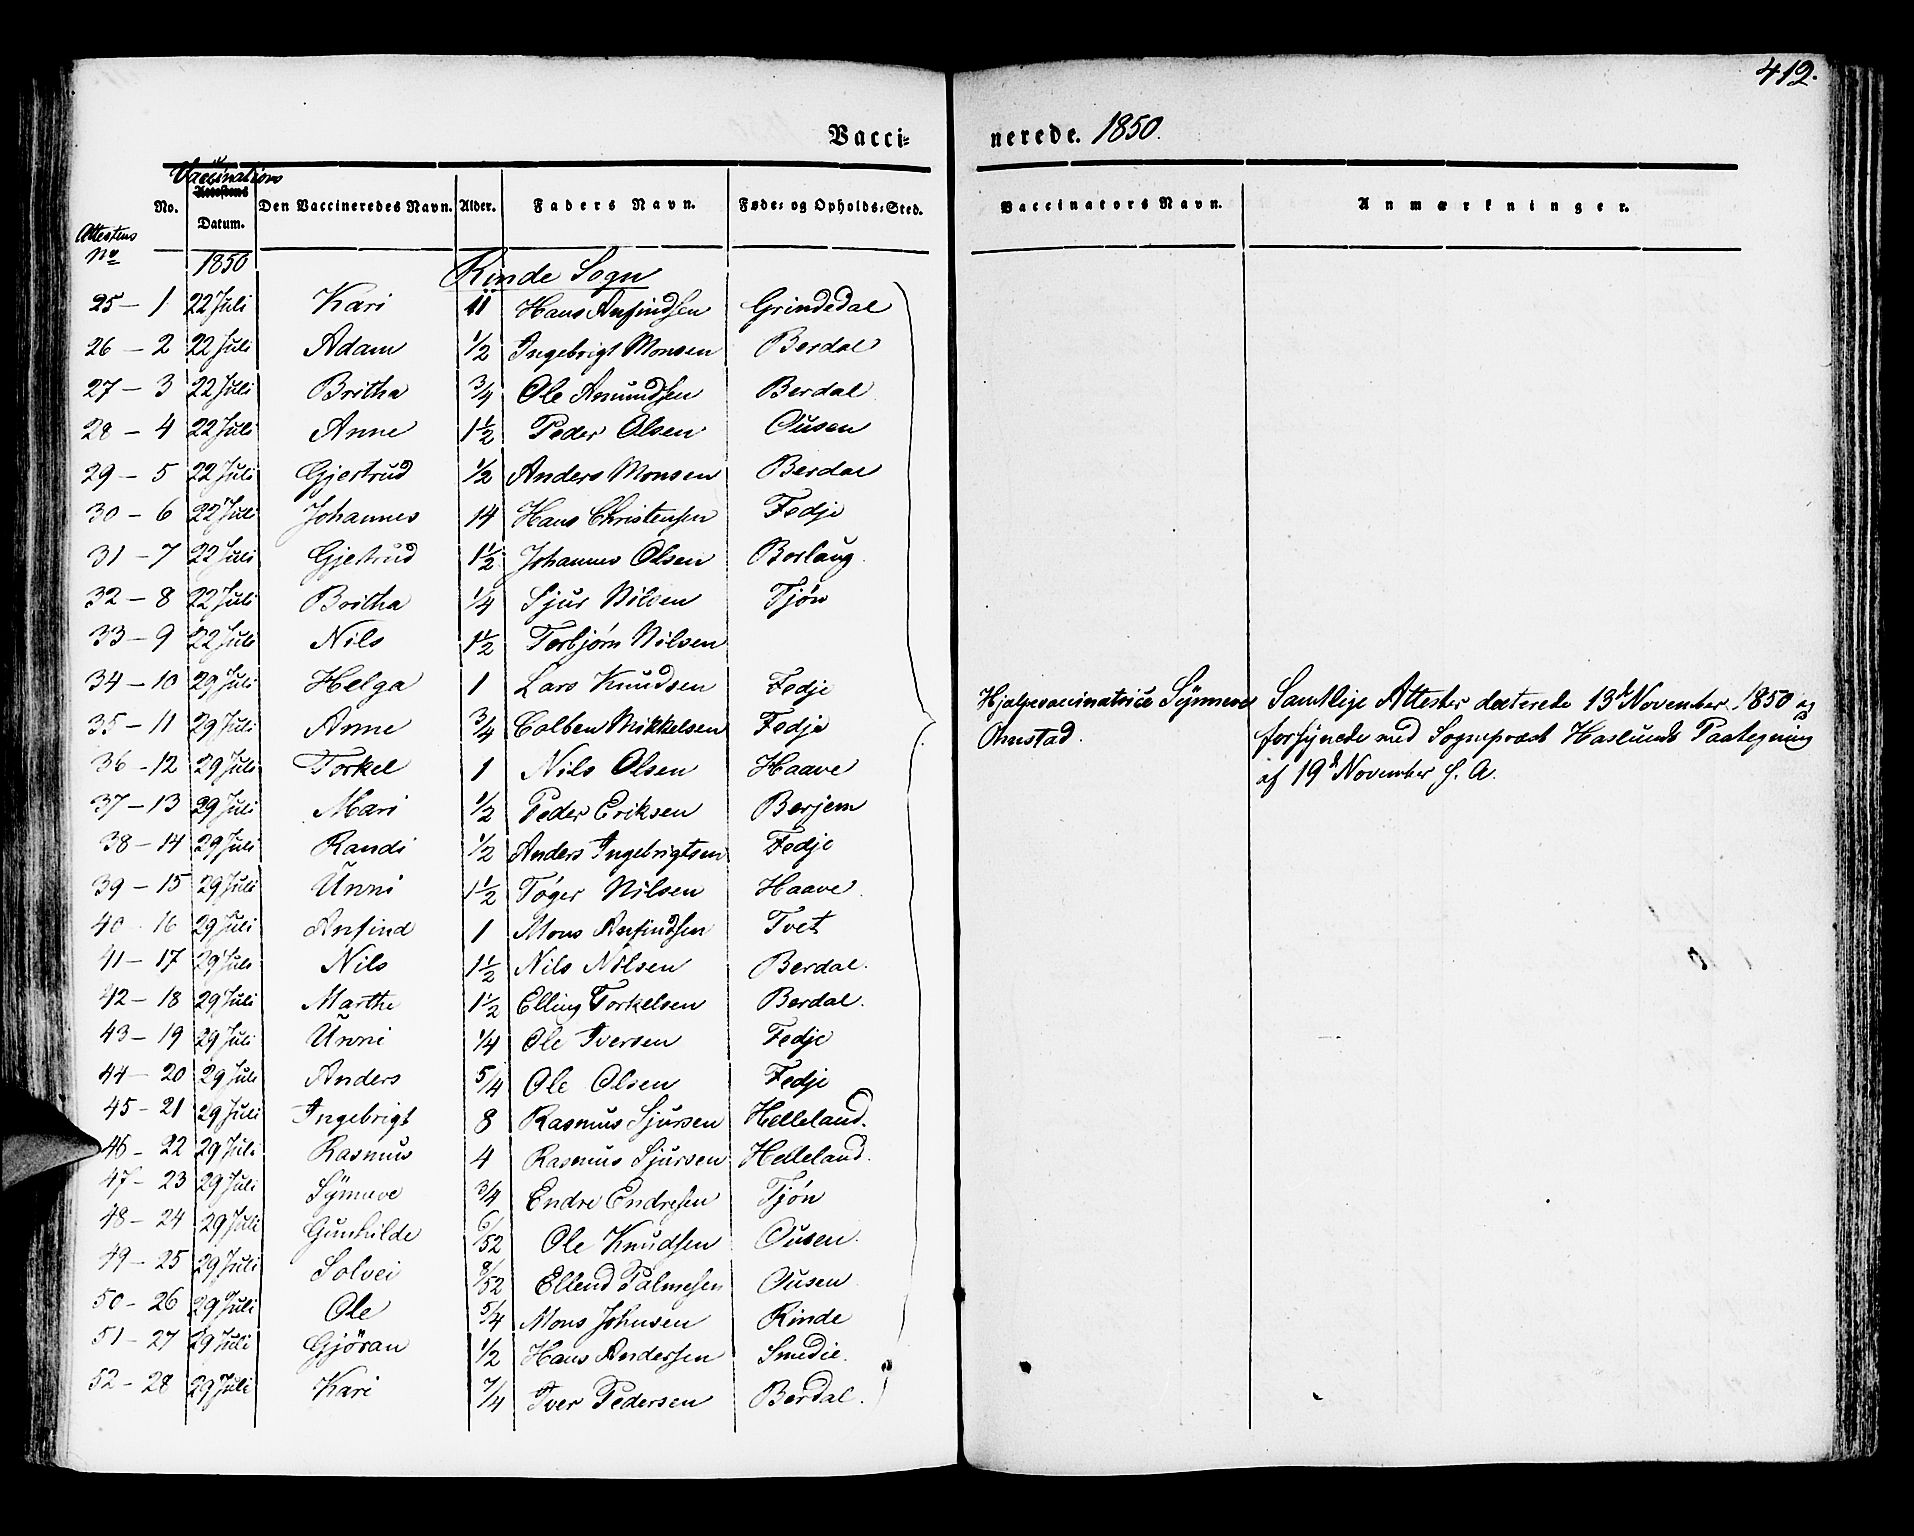 412.
Vacci-
nerede. 1850.
Vaccinations
No. Attestens Datum. Den Vaccineredes Navn. Alder. Faders Navn. Føde- og Opholds-Sted.
Vaccinators Navn. Anmærkninger.
Attestens No
1850 Rinde Sogn
25 - 1 22 Juli Kari 11 Hans Anfindsen Grindedal
26 - 2 22 Juli Adam 1/2 Ingebrigt Monsen Berdal
27 - 3 22 Juli Britha 3/4 Ole Amundsen Berdal
28 - 4 22 Juli Anne 1 1/2 Peder Olsen Ousen
29 - 5 22 Juli Gjertrud 1/2 Anders Monsen Berdal
30 - 6 22 Juli Johannes 14 Hans Christensen Fedje
31 - 7 22 Juli Gjertrud 1 1/2 Johannes Olsen Borlaug
32 - 8 22 Juli Britha 1/4 Sjur Nilsen Tjøn
33 - 9 22 Juli Nils 1 1/2 Torbjørn Nilsen
34 - 10 29 Juli Helga 1 Lars Knudsen Fedje
35 - 11 29 Juli Anne 3/4 Colben Mikkelsen Fedje
36 - 12 29 Juli Torkel 1 Nils Olsen Haave
37 - 13 29 Juli Mari 1/2 Peder Eriksen Berjem
38 - 14 29 Juli Randi 1/2 Anders Ingebrigtsen Fedje
39 - 15 29 Juli Unni 1 1/2 Tøger Nilsen Haave
40 - 16 29 Juli Anfind 1 Mons Anfindsen Tvet
41 - 17 29 Juli Nils 1 1/2 Nils Nilsen Berdal.
42 - 18 29 Juli Marthe 1 1/2 Elling Torkelsen Berdal.
43 - 19 29 Juli Unni 1/4 Ole Iversen Fedje
44 - 20 29 Juli Anders 5/4 Ole Olsen Fedje
45 - 21 29 Juli Ingebrigt 8 Rasmus Sjursen Helleland.
46 - 22 29 Juli Rasmus 4 Rasmus Sjursen Helleland.
47 - 23 29 Juli Synneve 3/4 Endre Endresen Tjøn
48 - 24 29 Juli Gunhilde 6/52 Ole Knudsen Ousen.
49 - 25 29 Juli Solvei 8/52 Ellend Palmesen Ousen
50 - 26 29 Juli Ole 5/4 Mons Johnsen Rinde
51 - 27 29 Juli Gjöran 1/2 Hans Andersen Smedie.
52 - 28 29 Juli Kari 7/4 Iver Pedersen Berdal.
Hjælpevaccinatrice Synneve
Ornstad.
Samtlige Attester daterede 13de November 1850 og
forsynede med Sognepræst Haslunds Paategning
af 19de November s. A.